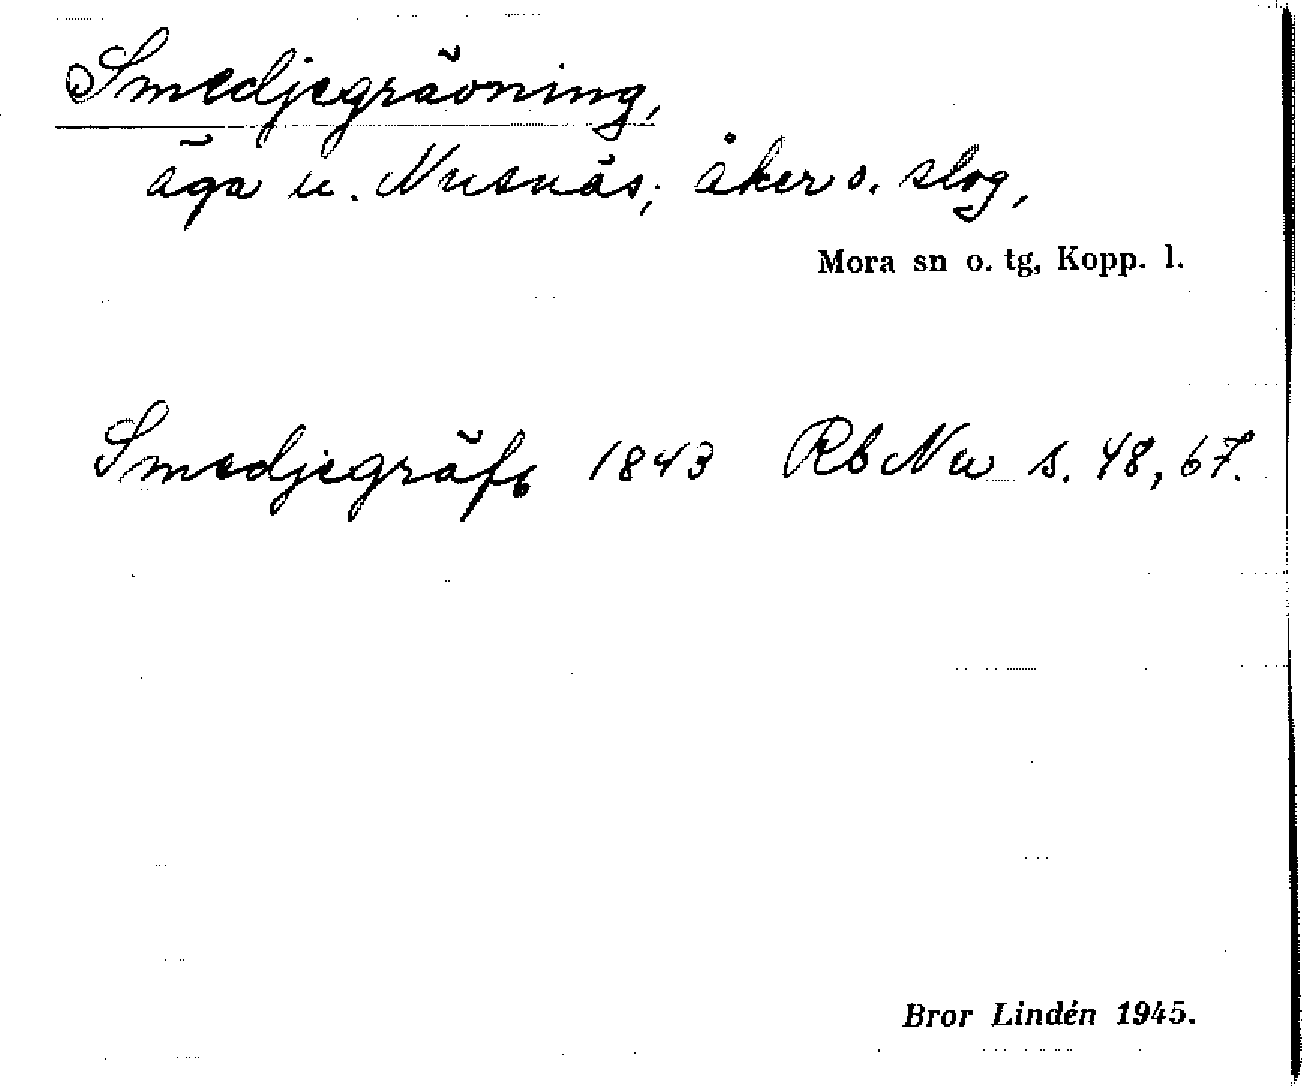 Smedjegrävning,
äga u. Nusnäs; åker o. slog,
Mora sn o. tg, Kopp. l.
Smedjegräfs 1843 Rb Nu s. 48, 67.
Bror Lindén 1945.